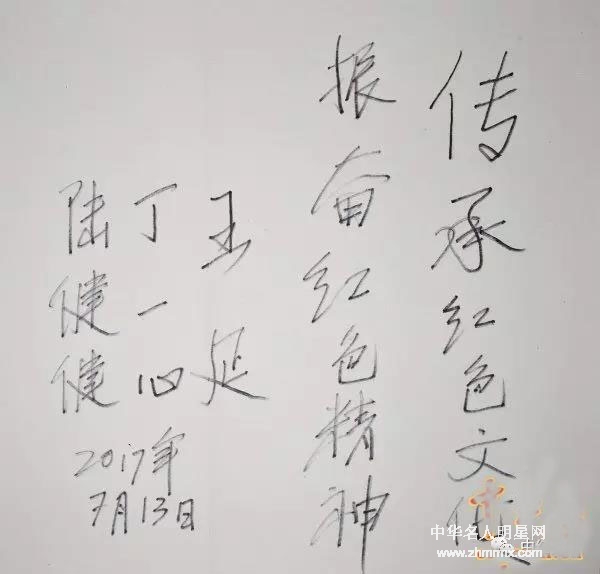 传承红色文化
振奋红色精神
王延
丁一心
陆健健
2017年
7月13日
中华名人明星网